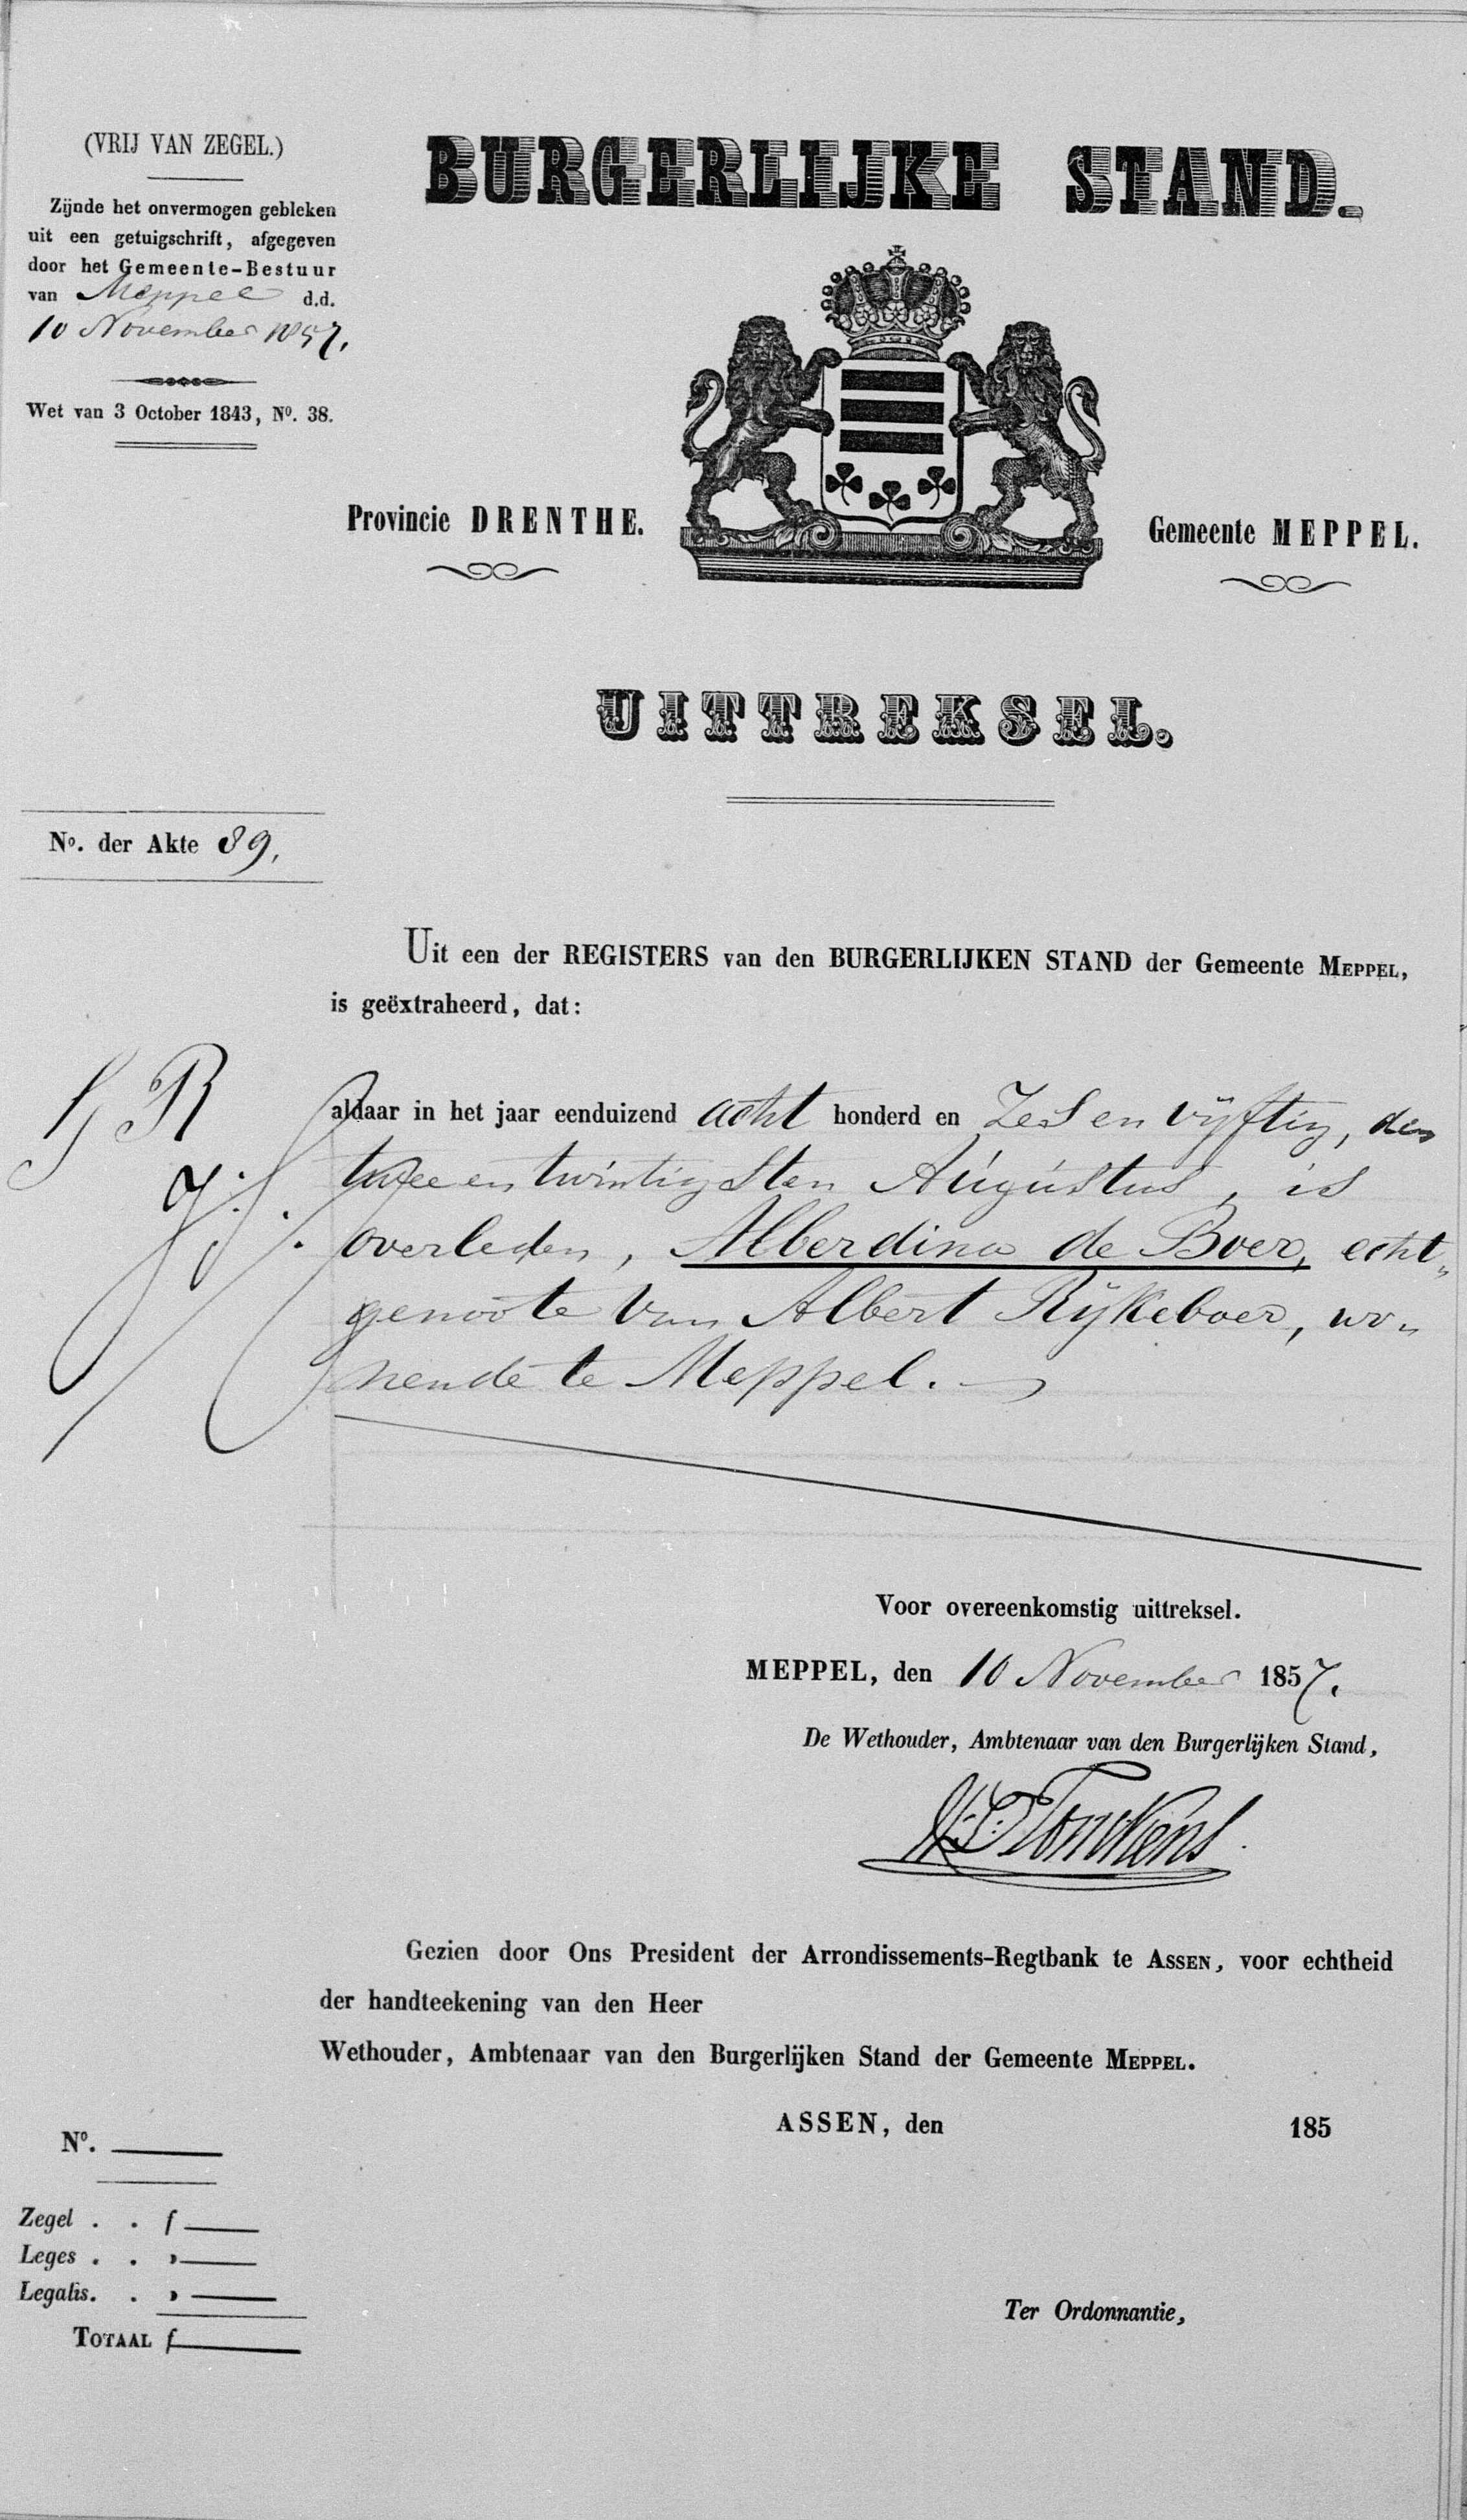 (VRIJ VAN ZEGEL.)
Zijnde het onvermogen gebleken
uit een getuigschrift, afgegeven
door het Gemeente-Bestuur
van Meppel d.d.
10 November 1857.
Wet van 3 October 1843, No. 38.
BURGERLIJKE STAND.
Provincie DRENTHE.
Gemeente MEPPEL.
UITTREKSEL.
No. der Akte 89,
Uit een der REGISTERS van den BURGERLIJKEN STAND der Gemeente MEPPEL,
is geëxtraheerd, dat:
aldaar in het jaar eenduizend acht honderd en Zes en vijftig, den
twee en twintigsten Augustus, is
overleden, Alberdina de Boer, echt„
genoote van Albert Rijkeboer, wo„
nende te Meppel.
Voor overeenkomstig uittreksel.
MEPPEL, den 10 November 1857.
De Wethouder, Ambtenaar van den Burgerlijken Stand,
Tonckens
Gezien door Ons President der Arrondissements-Regtbank te ASSEN, voor echtheid
der handteekening van den Heer
Wethouder, Ambtenaar van den Burgerlijken Stand der Gemeente MEPPEL.
ASSEN, den 185
No.
Zegel . . f
Leges . . »
Legalis. . »
TOTAAL f
Ter Ordonnantie,